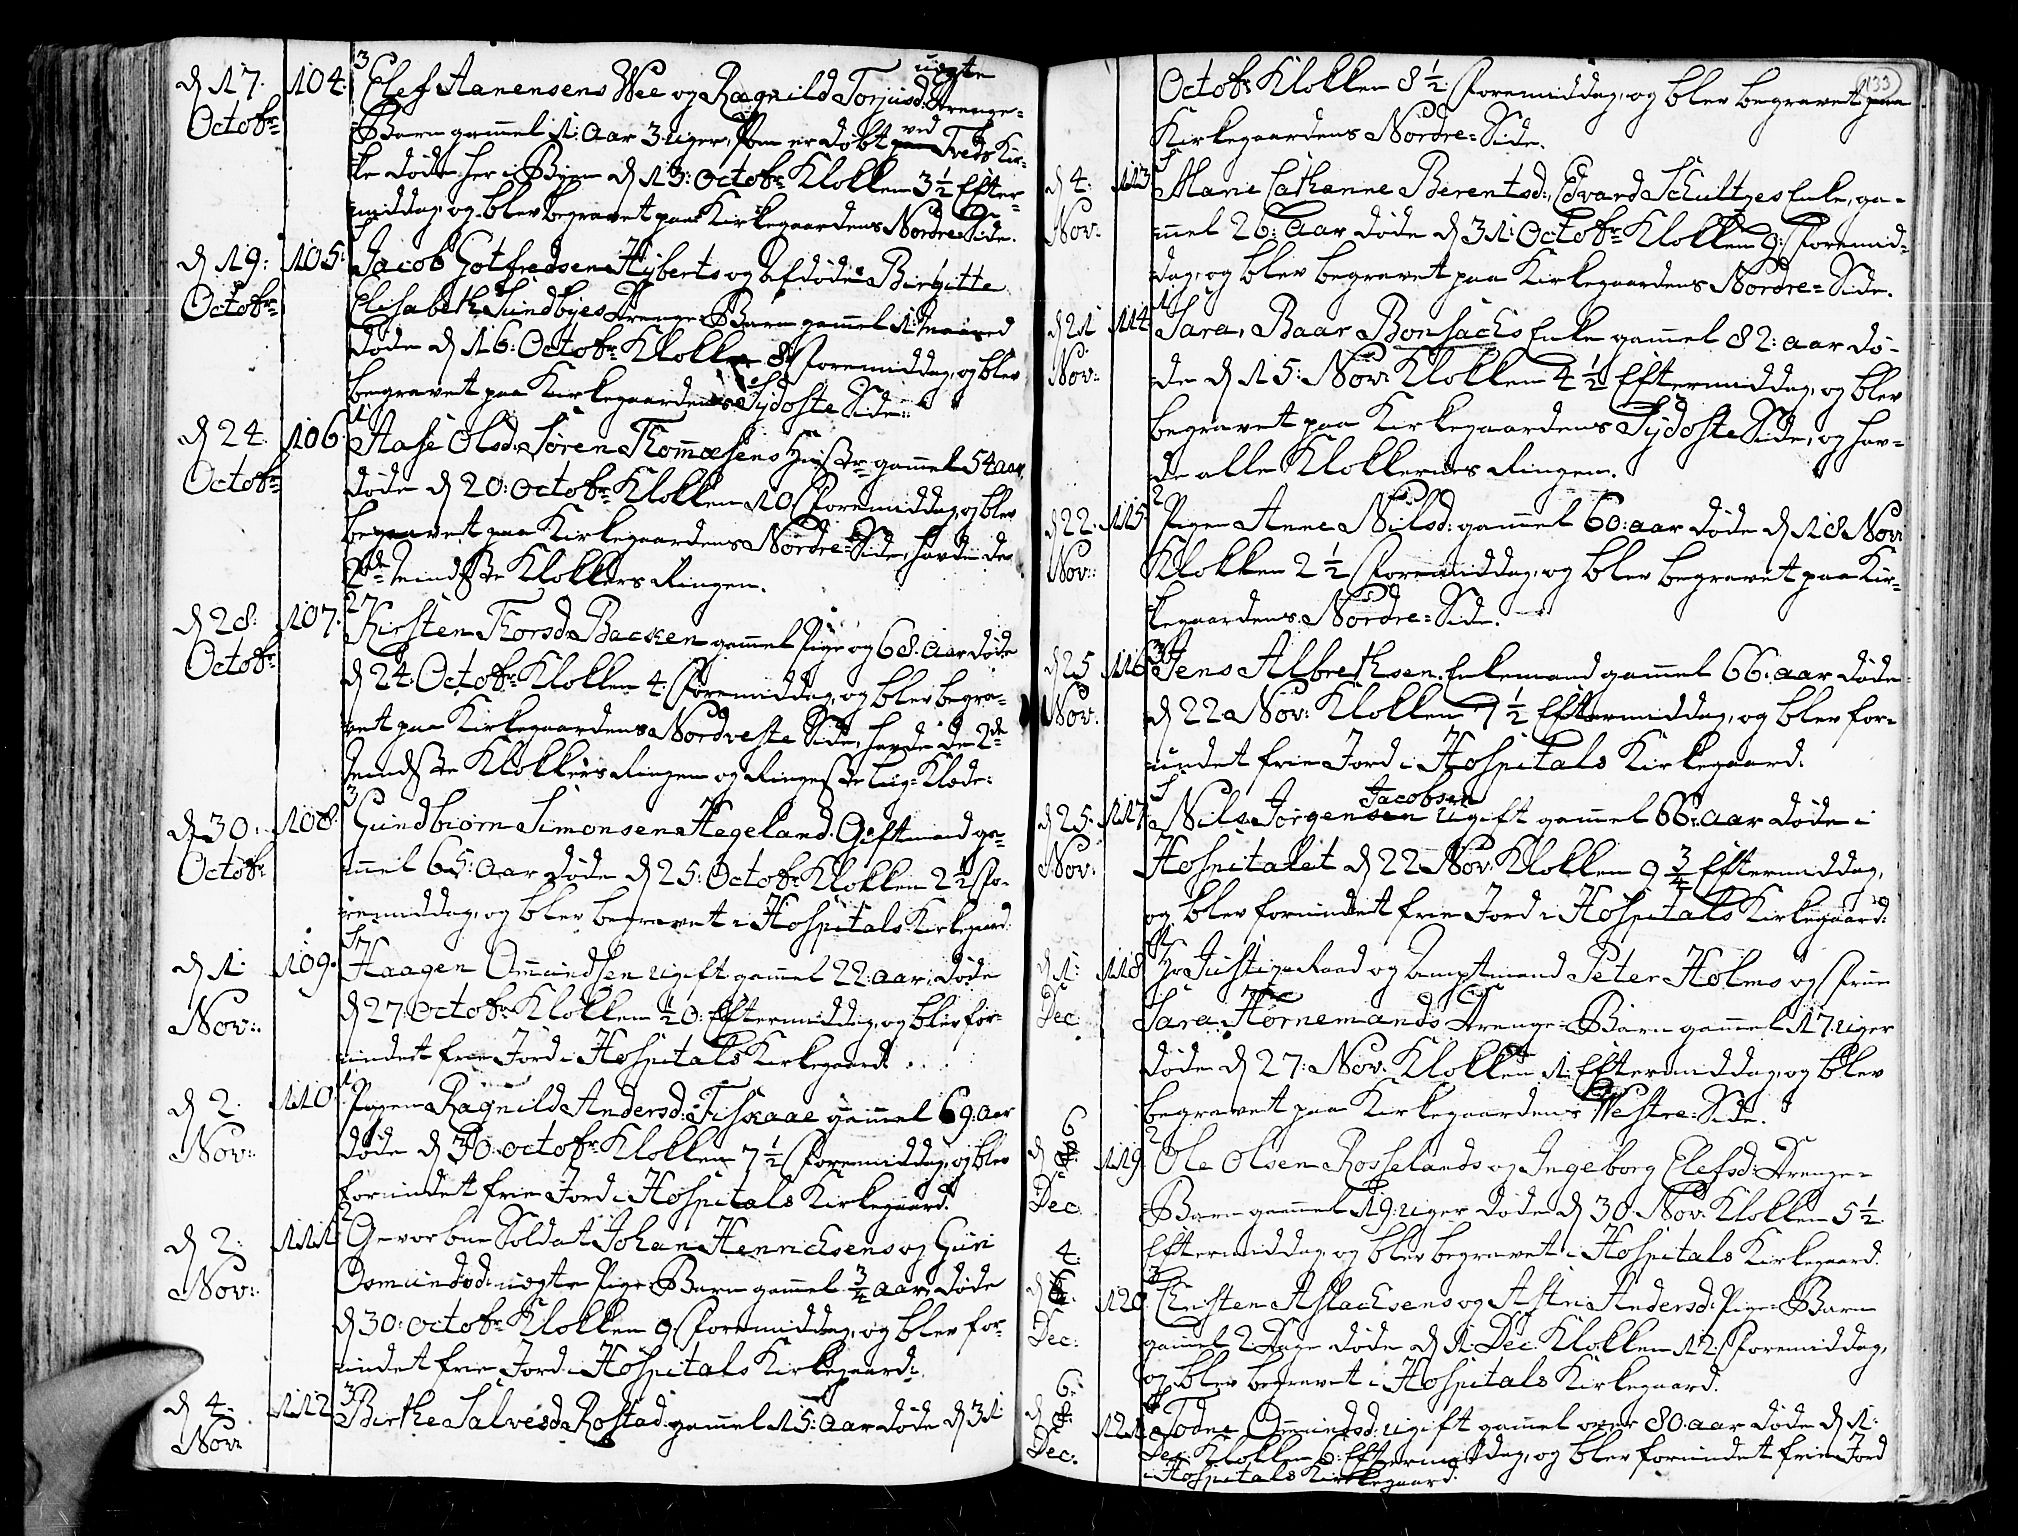 d 17. Octobr: 104. 3 Elef Aanensens Wee og Ragnild Torjusd: uægte Drenge-
Barn gammel 1: Aar 3 uger, som er døbt ved Tveds Kir-
ke døde her i Byen d 13: Octobr Klokken 3 1/2 Efter-
middag, og blev begravet paa Kirkegaardens Nordre Side.
d 19: Octobr: 105: Jacob Gotfredsen Hyberts og afdøde Birgitte
Elisabeth Sundbyes Drenge-Barn gammel 1: Maaned
døde d 16: Octobr Klokken 8 Foremiddag, og blev
begravet paa Kirkegaardens Sydoste Side.
d 24. Octobr: 106. 1 Aase Olsd: Søren Thommesens Hustr: gammel 54 aar,
døde d 20: Octobr Klokken 10 Foremiddag, og blev
begravet paa Kirkegaardens Nordre-Side, havde de
2de mindste Klokkers Ringen.
d 28: Octobr: 107. 2 Kirsten Thorsd: Backen gammel Pige og 68. aar døde
d 24: Octobr Klokken 4. Foremiddag, og blev begra-
vet paa Kirkegaardens Nordveste Side, havde de 2de
mindste Klokkers Ringen og Ringeste Liig-Klæde:
d 30: Octobr: 108. 3 Gundbiorn Simonsen Hegeland. Giftmand ga-
mmel 65: Aar døde d 25: Octobr Klokken 2 1/2 Fo-
remiddag, og blev begravet i Hospitals Kirkegaard.
d 1: Nov: 109. Haagen Omundsen ugift gammel 22: aar, døde
d 27: Octobr Klokken 10: Eftermiddag, og blev for-
undet frie Jord i Hospitals Kirkegaard.
d 2. Nov: 110. 1 Pigen Ragnild Andersd: Fiskaae gammel 69: aar
døde d 30: octobr Klokken 7 1/2 Foremiddag, og blev
forundet frie Jord i Hospitals Kirkegaard.
d 2: Nov: 111. 2 Gevorben Soldat Johan Henrichsens og Guri
Osmundsd: uægte Pige-Barn gammel 3/4 aar, døde
d 30: octobr Klokken 9 Foremiddag, og blev for-
undet frie Jord i Hospitals Kirkegaard.
d 4. Nov: 112 3 Birthe Salvesd: Rostad gammel 15: aar døde d 31
133
Octobr Klokken 8 1/2 Foremiddag, og blev begravet paa
Kirkegaardens Nordre-Side.
d 4. Nov: 113 Marie Cathanne Berentsd: Edvard Schultzes Enke, ga-
mmel 26: Aar døde d 31: Octobr Klokken 9: Foremid-
dag, og blev begravet paa Kirkegaardens Nordre-Side.
d 21 Nov: 114 1 Sara, Baar Bonsachs Enke gammel 82: aar dø-
de d 15: Nov: Klokken 4 1/2 Eftermiddag, og blev
begravet paa Kirkegaardens Sydoste Side, og hav-
de alle Klokkernes Ringen.
d 22. Nov: 115 2 Pigen Anne Nilsd: gammel 60: aar døde d 18 Nov:
Klokken 2 1/2 Foremiddag, og blev begravet paa Kir-
kegaardens Nordre-Side.
d 25 Nov: 116 3 Jens Albrethsen Enkemand gammel 66: aar døde
d 22 Nov: Klokken 7 1/2 Eftermiddag, og blev for-
undet frie Jord i Hospitals Kirkegaard.
d 25. Nov: 117 Nils Jørgensen Jacobsen ugift gammel 66: aar døde i
Hospitalet d 22 Nov: Klokken 9 3/4 Eftermiddag,
og blev forundet frie Jord i Hospitals Kirkegaard:
d 1: Dec 118 Hr Justiz-Raad og Amptmand Peter Holms og Frue
Sara Hornemands Drenge-Barn gammel 17. uger
døde d 27: Nov: Klokken 1. Eftermiddag, og blev
begravet paa Kirkegaardens Westre-Side.
d 6 Dec: 119 2 Ole Olsen Rosselands og Ingeborg Elefsd: Drenge-
Barn gammel 19: uger døde d 30 Nov: Klokken 5 1/2
Eftermiddag, og blev begravet i Hospitals Kirkegaard.
d 4: Dec: 120 3 Christen Aslachsens og Astri Andersd: Pige-Barn
gammel 2 Dage døde d 1: Dec: Klokken 12: Foremiddag,
og blev begravet i Hospitals Kirkegaard.
d 6 Dec: 121 Todne Omundsd: ugift gammel over 80: aar døde d 1:
Dec: Klokken 6: Eftermiddag, og blev forundet frie Jord
i Hospitals Kirkegaard.